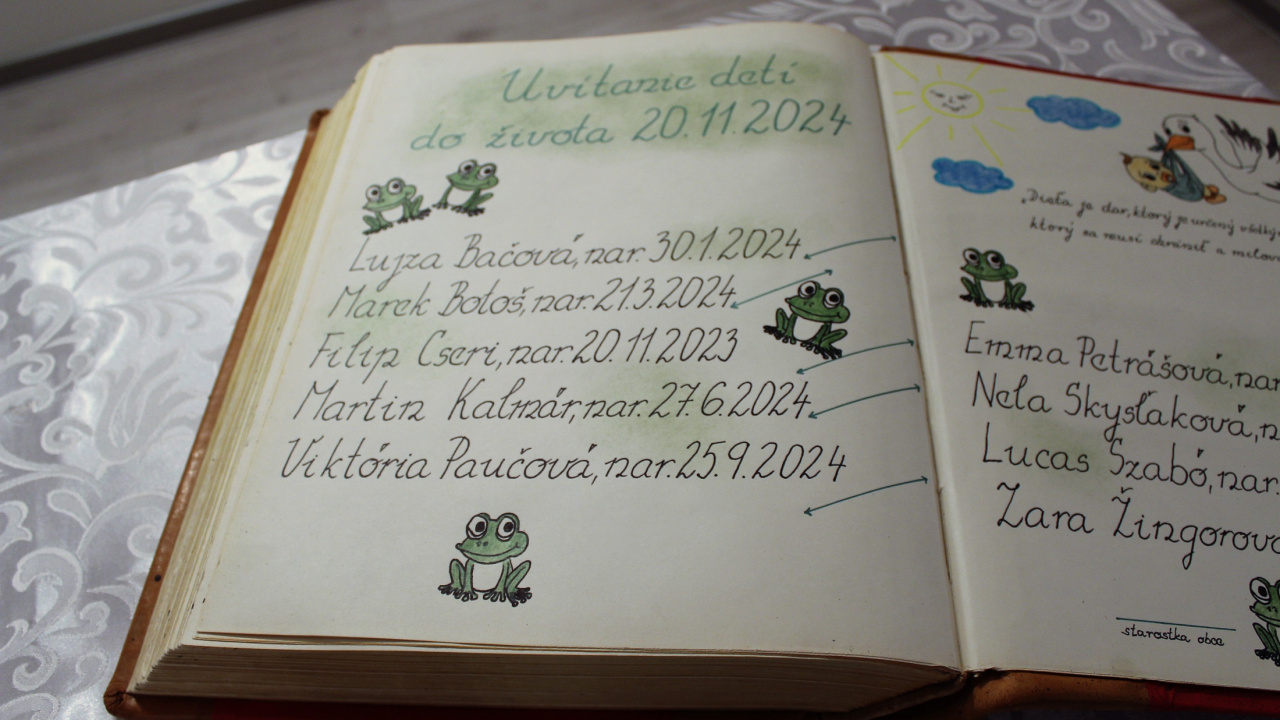 Uvítanie detí
do života 20.11.2024
Lujza Bačová, nar. 30.1.2024
Marek Botoš, nar. 21.3.2024
Filip Cseri, nar. 20.11.2023
Martin Kalmár, nar. 27.6.2024
Viktória Paučová, nar. 25.9.2024
„Dieťa je dar, ktorý je určený
ktorý sa musí chrániť a
Emma Petrášová, nar
Nela Skysľaková, n
Lucas Szabó, nar.
Zara Žingorová
starostka obce